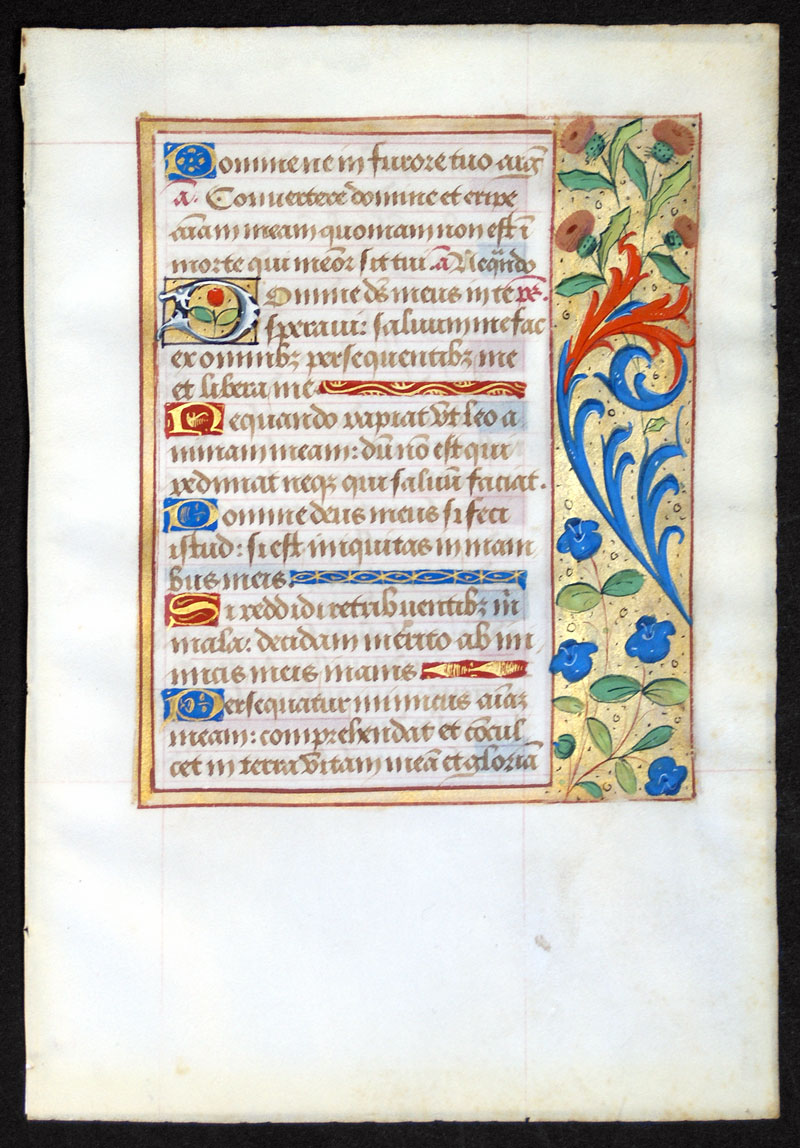 Domine ne in furore tuo arg̃
a. Convertere domine et eripe
aīam meam quoniam non est ī
morte qui memor sit tui a Neqñdo
Domine ds̄ meus in te ps̄.
speravi: salvum me fac
ex omnibꝫ persequentibꝫ me
et libera me.
Nequando rapiat vt leo a
nimam meam: dū nō est qui
redimat neqꝫ qui salvū faciat.
Domine deus meus si feci
istud: si est iniquitas in mani
bus meis.
Si reddidi retribuentibꝫ m̄
mala: decidam merito ab ini
micis meis inanis
Persequatur inimicus aīaꝫ
meam: comprehendat et cōcul
cet in terra vitam meā et gloriā